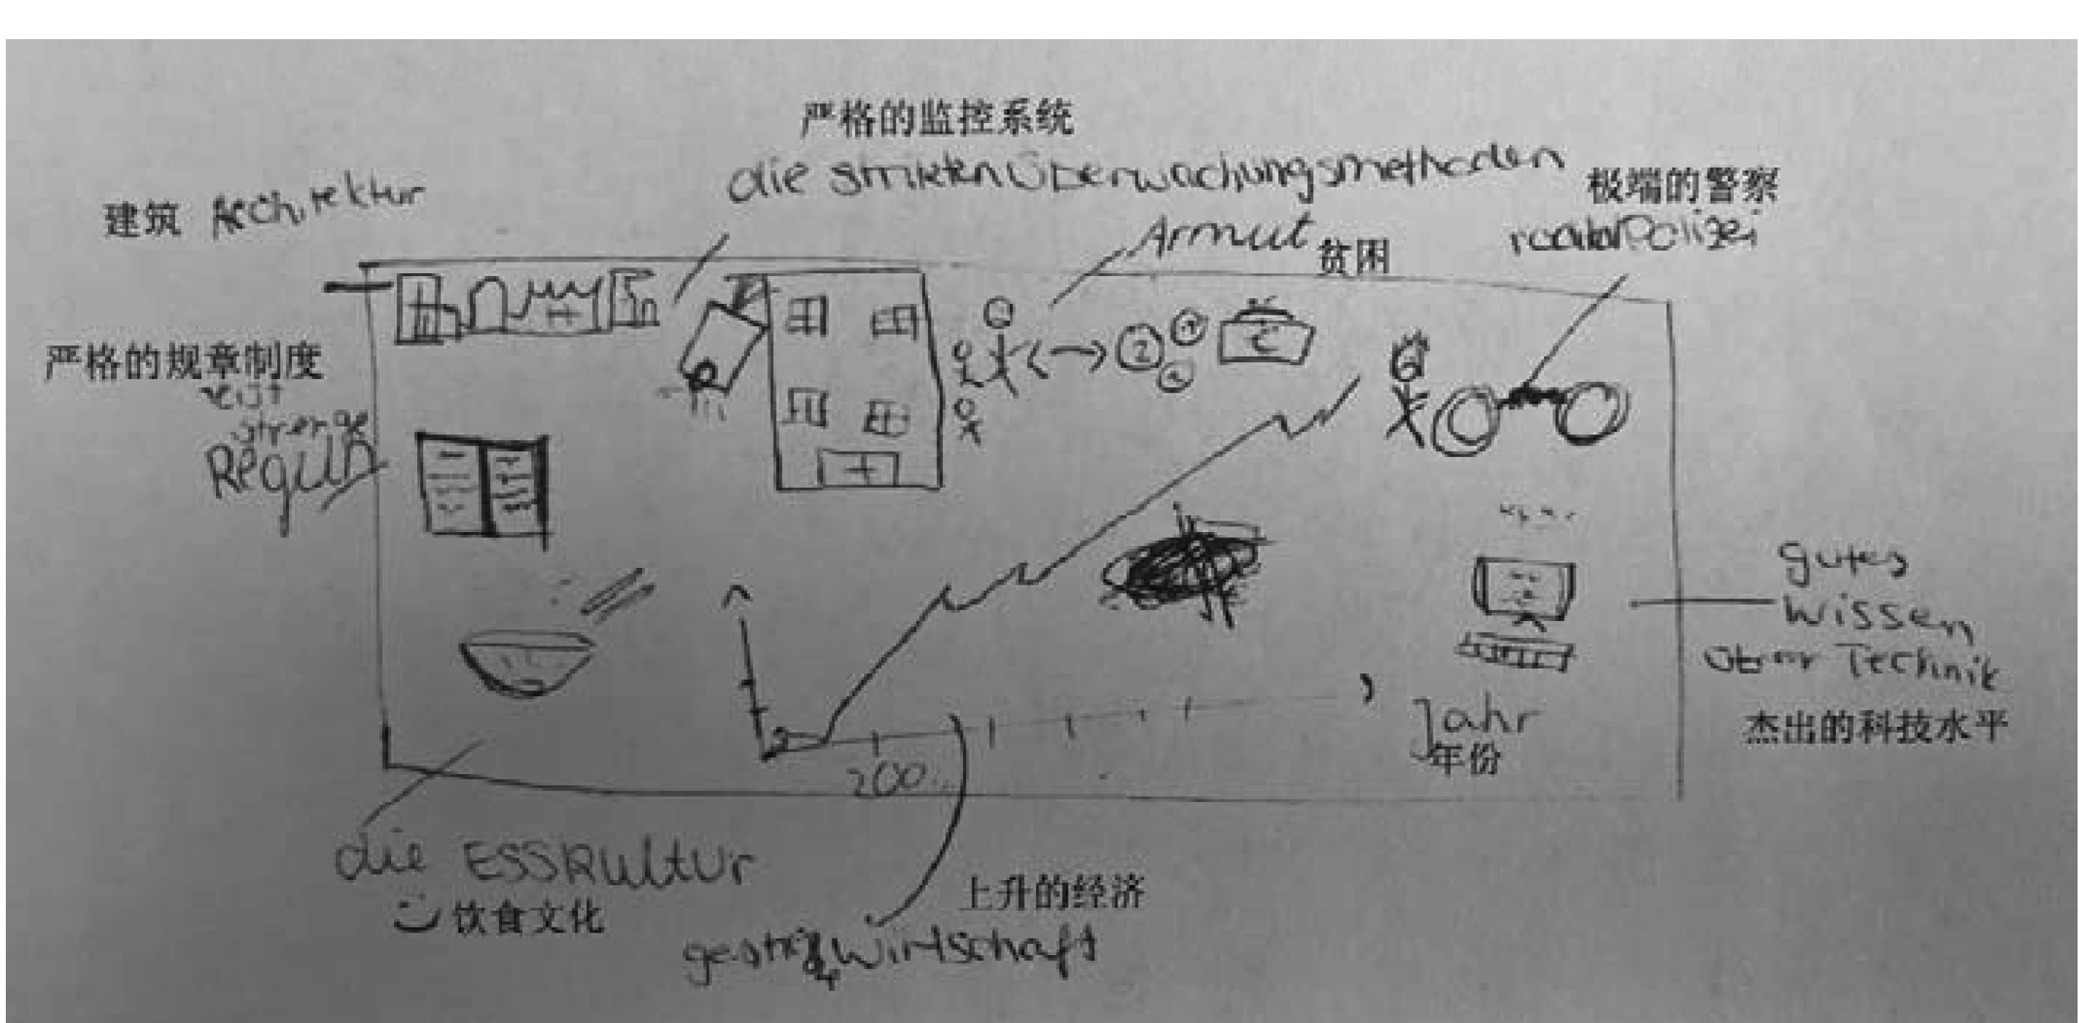 严格的监控系统
die strikten Überwachungsmethoden
建筑 Architektur
极端的警察
Polizei
Armut 贫困
严格的规章制度
strenge
Regeln
200
Jahr
年份
gutes
Wissen
über Technik
杰出的科技水平
die ESSKultur
饮食文化
上升的经济
Wirtschaft